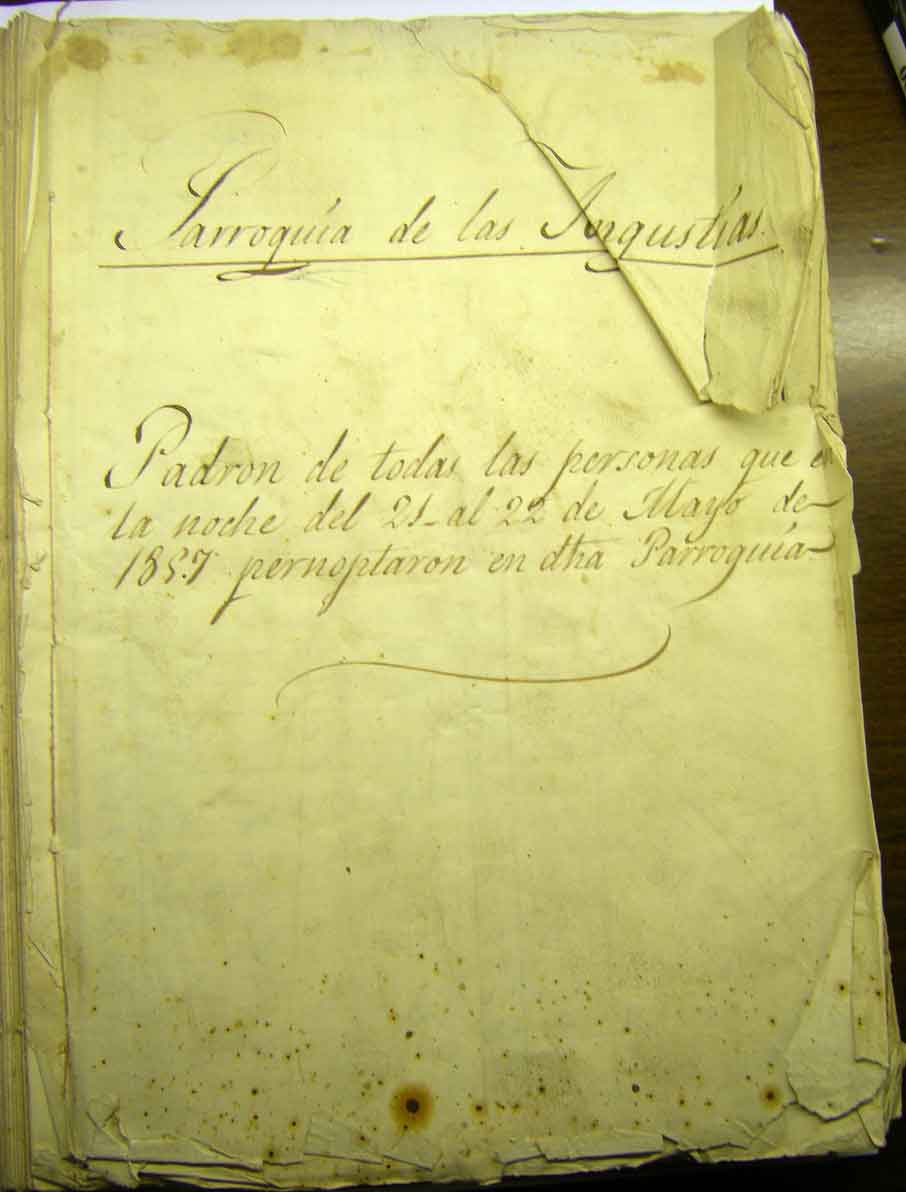 Parroquia de las Angustias.
Padron de todas las personas que en
la noche del 21 al 22 de Mayo de
1857 pernoptaron en dha Parroquia